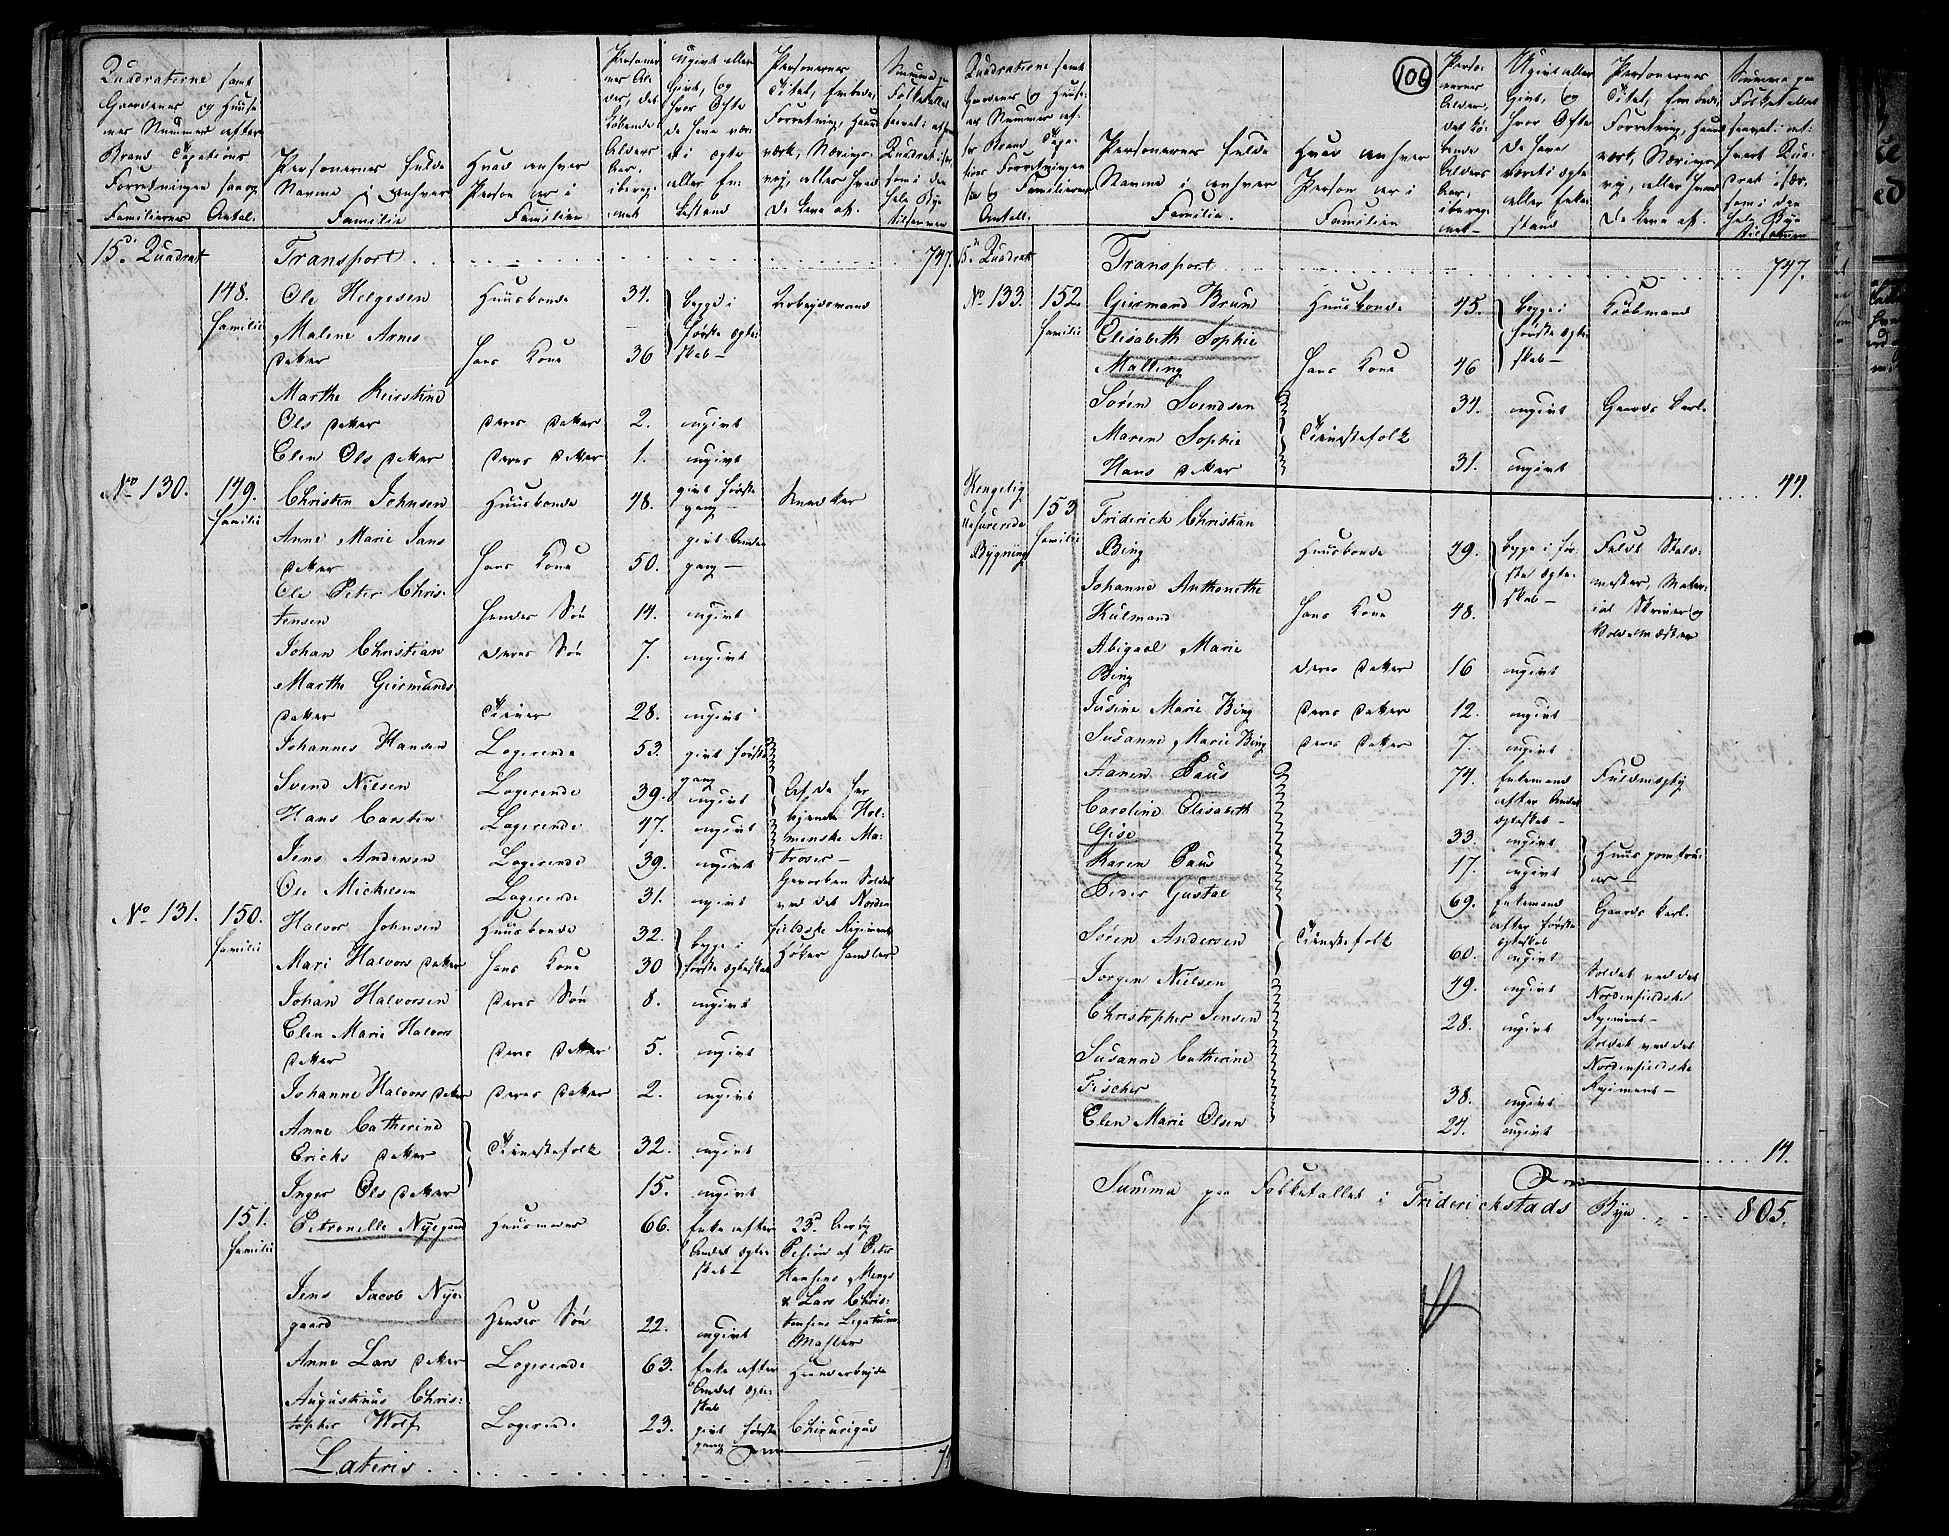 Quadraterne samt
Gaardenes og Huuse
nes Nummer efter
Brand Taxations
Forretningen saa og
Familiernes Antal.
Personernes fulde
Navne i enhver
Familie
Hvad enhver
Person er i
Familien
Personer
nes Al-
der, det
løbende
Alders
Aar,
ibereg-
net
Ugivt eller
Givt, og
hvor Ofte
de have væ-
ret i Ægte
eller En
kestand
Personernes
Titel, Embede,
Forretning, Haand
værk, Nærings-
vej, eller hvad
de leve af.
Summa paa
Folketallet
15de Quadrat
Transport 747.
148. Familie
Ole Helgesen Huusbonde 34. begge i første Ægte-skab— Arbejdsmand
Malene Arnes
Datter Hans Kone 36
Marthe Kirstine
Ols Datter Deres Datter 2. ugivt
Elen Ols Datter Deres Datter 1. ugivt
No 130. 149. Familie
Christen Johnsen Huusbonde 48. givt første gang— Snedker
Anne Marie Jans
Datter Hans Kone 50. givt Anden gang—
Ole Peter Chris-
tensen Hendes Søn 14. ugivt
Johan Christian Deres Søn 7. ugivt
Marthe Geirmunds
Datter Tiener 28. ugivt
Johannes Hansen Logerende 53. givt første gang
Svend Nilsen Logerende 39. ugivt
Hans Carsten Logerende 47. ugivt
Jens Andersen Logerende 39. ugivt
Ole Mickelsen Logerende 31. ugivt
Af de her
liggende Hol-
menske Ma-
troser—
Gevorben Soldat
ved det Norden
fieldske Regiment
No 131. 150. Familie
Halvor Johnsen Huusbonde 32. begge i første Ægteskab Høker Handler
Mari Halvors Datter Hans Kone 30
Johan Halvorsen Deres Søn 8. ugivt
Elen Marie Halvors
Datter Deres Datter 5. ugivt
Johanne Halvors Datter Deres Datter 2. ugivt
Anne Catherine
Ericks Datter Tienestefolk 32. ugivt
Inger Ols Datter 15. ugivt
151. Familie
Petronelle Nyegaard Huusmoer 66. Enke efter Andet Ægte-skab—
Pension af Peder
Hansens
& Lars Chris-
tensens Legatum
Jens Jacob Nye-
gaard Hendes Søn 22. ugivt
Anne Lars Datter Logerende 63. Enke efter Andet Ægte-skab Haandarbejde
Augustinus Chris-
topher Wolf Logerende 23. givt første gang— Chirurigus
Lateris
106
Quadraterne samt
Gaardenes og Huuse-
nes Nummer ef-
ter Brand Taxa-
tions Forretningen
saa og Familiernes
Antall.
Personernes fulde
Navne i enhver
Familie.
Hvad enhver
Person er i
Familien
Perso-
nernes
Alder,
det lø-
bende
Alders
Aar,
ibereg-
net—
Ugivt eller
Givt, og
hvor Ofte
de have
været i Ægte
eller Enke-
stand
Personernes
Titel, Embede,
Forretning, Haand
værk, Nærings-
vej, eller hvad
de leve af.
Summa paa
Folketallet
saavel i et-
hvert Qua-
drat især,
som i den
hele Bye
tilsammen
15de Quadrat
Transport 747.
No 133. 152. Familie
Geirmand Brun Huusbonde 45. begge i første Ægte-skab— Kiøbmand
Elisabeth Sophie
Malling Hans Kone 46
Sören Svendsen 34. ugivt Gaards Karl.
Maren Sophie Tienestefolk
Hans Datter 31. ugivt
44.
Kongelig
Bygning
153 Familie
Friderich Christian
Bing Huusbonde 49. begge i før-ste Ægte-skab—
Johanne Anthonethe
Hulmand Hans Kone 48.
Abigael Marie
Bing Deres Datter 16 ugivt
Jusine Marie Bing Deres Datter 12. ugivt
Susanne Marie Bing Deres Datter 7. ugivt
Aanen Paus 74. Enkemand efter Andet Ægteskab— Fuldmægtig
Caroline Elisabeth
Gise 33. ugivt
Karen Paus 17. ugivt
Peder Gustal 69. Enkemand efter første Ægteskab Gaards Karl.
Sören Andersen Tienestefolk 60. ugivt
Jörgen Nielsen 49. ugivt Soldat ved det Nordenfieldske Regiment—
Christopher Jensen 28. ugivt Soldat ved det Nordenfieldske Regiment—
Susanne Catherine
Fischer 38. ugivt
Elen Marie Olsen 24. ugivt
14.
Summa paa Folketallet i Friderickstads Bye 805.